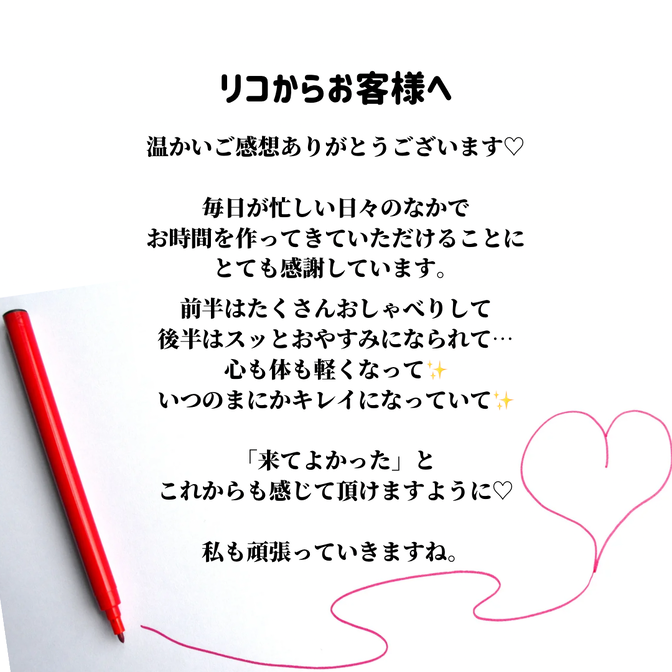 リコからお客様へ
温かいご感想ありがとうございます♡
毎日が忙しい日々のなかで
お時間を作ってきていただけることに
とても感謝しています。
前半はたくさんおしゃべりして
後半はスッとおやすみになられて…
心も体も軽くなって✨
いつのまにかキレイになっていて✨
「来てよかった」と
これからも感じて頂けますように♡
私も頑張っていきますね。